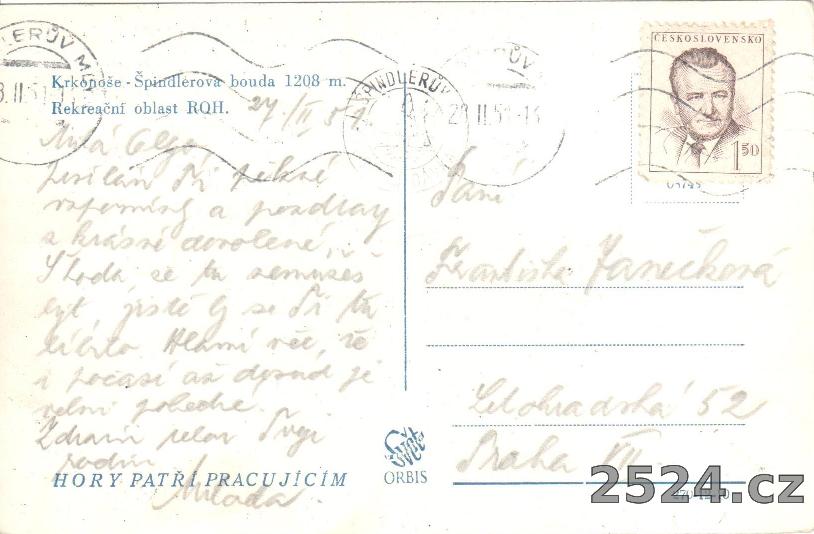 Krkonoše - Špindlerova bouda 1208 m.
Rekreační oblast ROH.
27/II 5
Milá Olgo,
posílám Ti pěkné
vzpomínky a pozdravy
z krásné dovolené.
Škoda, že tu nemůžeš
být, jistě by se Ti tu
líbilo. Hlavní věc, že
i počasí až dosud je
velmi pohodné.
Zdraví celou Tvoji
rodinu
Milada.
HORY PATŘÍ PRACUJÍCÍM
Svět
ORBIS
ŠPINDLERŮV
ČESKOSLOVENSKO
1.50
Paní
Františka Janečková
Letohradská 52
Praha VII
2524.cz